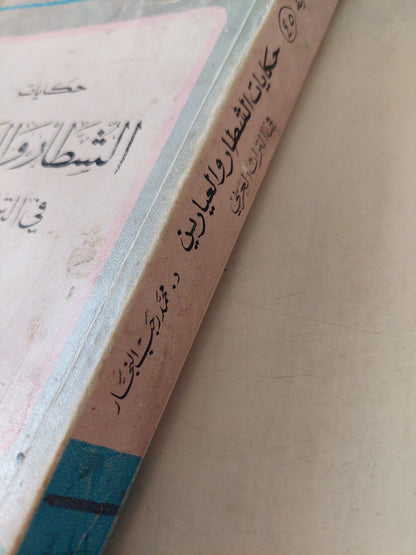 حكايات
الشطار وا
في الت
٤٥
حكايات الشطار والعيارين
في التراث العربي
د. محمد رجب النجار